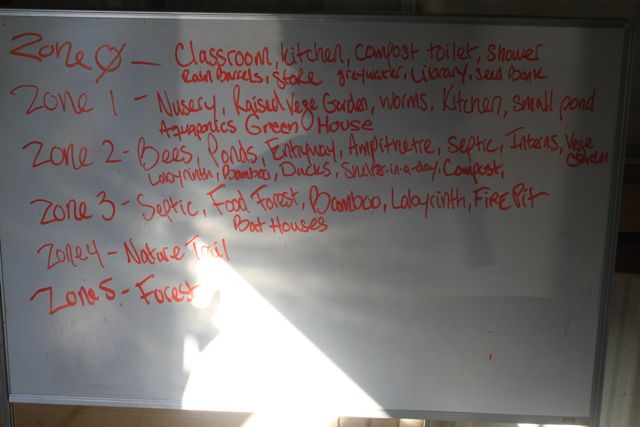 Zone 0 - Classroom, kitchen, compost toilet, shower
Rain Barrels, Store greywater, Library, seed Bank
Zone 1 - Nusery, Raised Vege Garden, worms, Kitchen, small pond
Aquaponics Green House
Zone 2- Bees, Ponds, Entryway, Ampitheatre, Septic, Interns, Vege Garden
Labyrinth, Bamboo, Ducks, Shelter-in-a-day, Compost,
Zone 3 - Septic, Food Forest, Bamboo, Labyrinth, Fire Pit
Bat Houses
Zone 4 - Nature Trail
Zone 5 - Forest